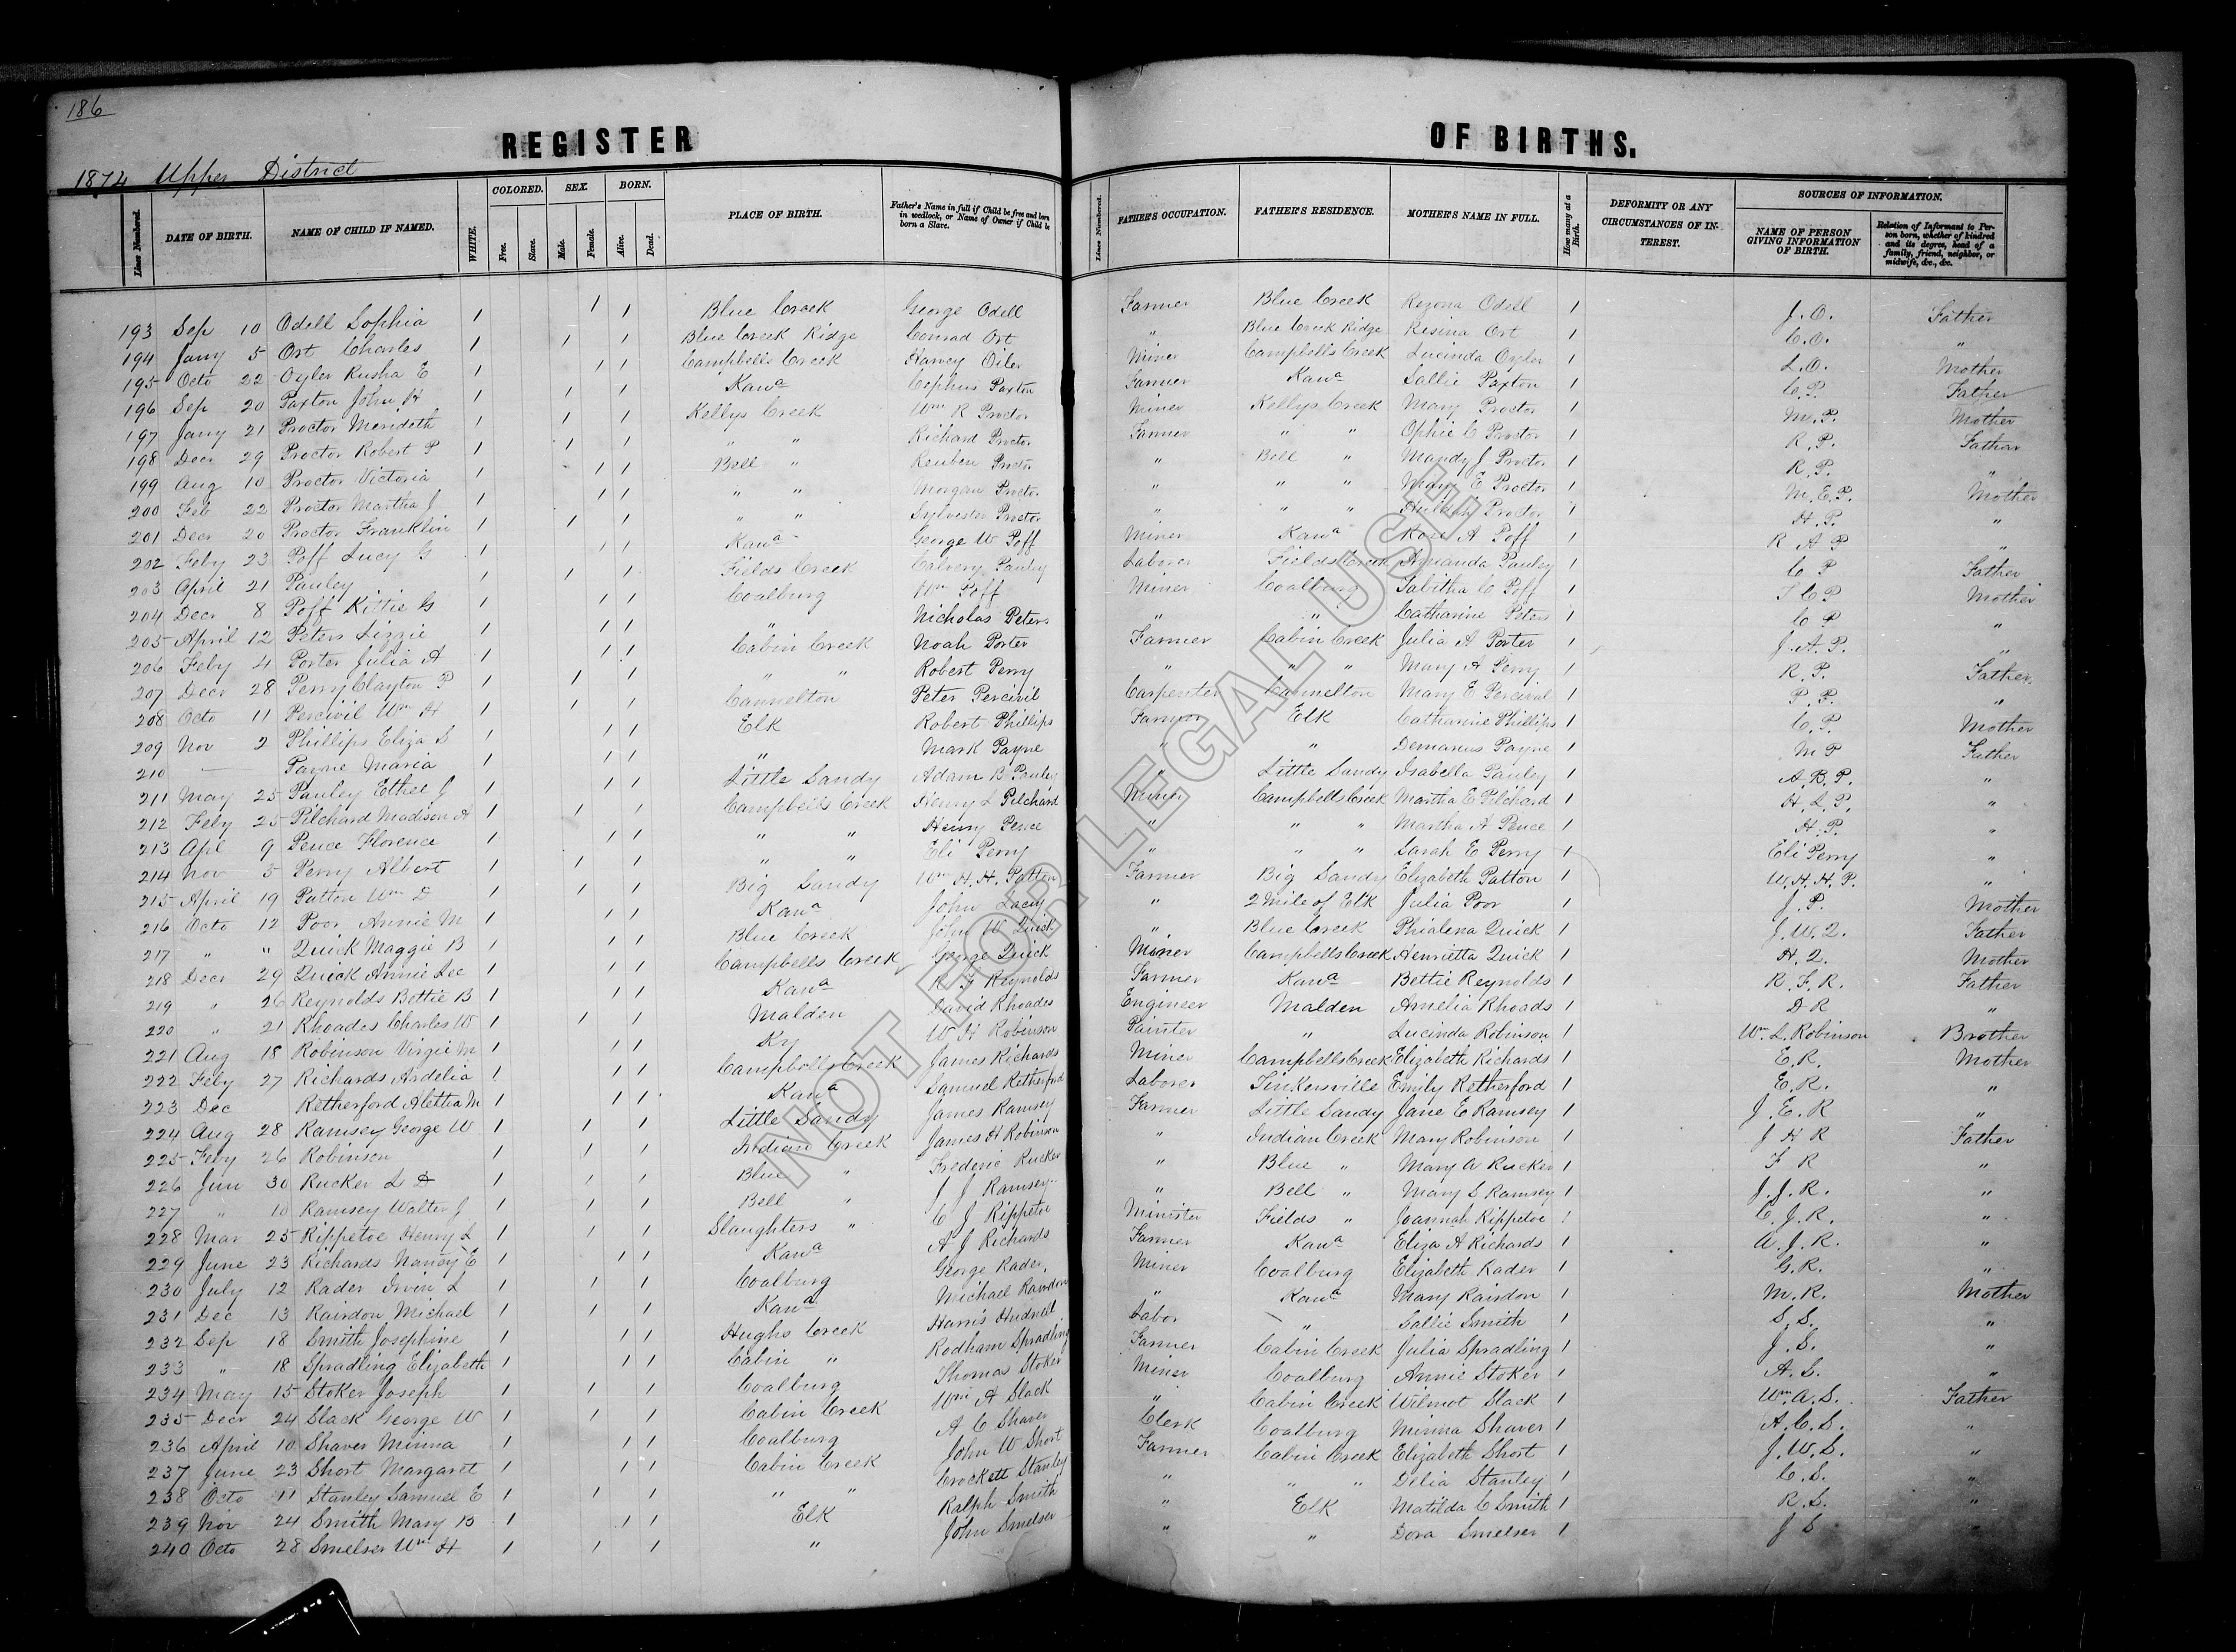 186
REGISTER OF BIRTHS.
1874 Upper District
Lines Numbered. DATE OF BIRTH. NAME OF CHILD IF NAMED. WHITE. COLORED. Free. Slave. SEX. Male. Female. BORN. Alive. Dead. PLACE OF BIRTH. Father's Name in full if Child be free and born in wedlock, or Name of Owner if Child be born a Slave. Lines Numbered. FATHER'S OCCUPATION. FATHER'S RESIDENCE. MOTHER'S NAME IN FULL. How many at a Birth. DEFORMITY OR ANY CIRCUMSTANCES OF INTEREST. SOURCES OF INFORMATION. NAME OF PERSON GIVING INFORMATION OF BIRTH. Relation of Informant to Person born, whether of kindred and its degree, head of a family, friend, neighbor, or midwife, &c., &c.
193 Sep 10 Odell Sophia 1 1 1 Blue Creek George Odell Farmer Blue Creek Rozona Odell 1 J. O. Father
194 Jany 5 Ort Charles 1 1 1 Blue Creek Ridge Conrad Ort " Blue Creek Ridge Resina Ort 1 C. O. "
195 Octo 22 Oyler Rusha E 1 1 1 Campbells Creek Harvey Oiler Miner Campbells Creek Lucinda Oyler 1 L. O. Mother
196 Sep 20 Paxton John H 1 1 1 Kawa Cephus Paxton Farmer Kawa Sallie Paxton 1 C. P. Father
197 Jany 21 Proctor Merideth 1 1 1 Kellys Creek Wm R Proctor Miner Kellys Creek Mary Proctor 1 M. P. Mother
198 Decr 29 Proctor Robert P 1 1 1 " " Richard Proctor Farmer " " Ophie C Proctor 1 R. P. Father
199 Aug 10 Proctor Victoria 1 1 1 Bell " Reuben Proctor " Bell " Mandy J Proctor 1 R. P. "
200 Feb 22 Proctor Martha J 1 1 1 " " Morgan Proctor " " " Mary E Proctor 1 M. E. P. Mother
201 Decr 20 Proctor Franklin 1 1 1 " " Sylvester Proctor " " " Proctor 1 H. P. "
202 Feby 23 Poff Lucy G 1 1 1 Kawa George W Poff Miner Kawa Rose A Poff 1 R A P "
203 April 21 Pauley 1 1 1 Fields Creek Calvery Pauley Laborer Fields Creek Amanda Pauley 1 C P Father
204 Decr 8 Poff Kittie G 1 1 1 Coalburg Wm Poff Miner Coalburg Tabitha C Poff 1 T C P Mother
205 April 12 Peters Lizzie 1 1 1 " Nicholas Peters " " Catharine Peters 1 C P "
206 Feby 4 Porter Julia A 1 1 1 Cabin Creek Noah Porter Farmer Cabin Creek Julia A Porter 1 J. A. P. "
207 Decr 28 Perry Clayton P 1 1 1 " " Robert Perry " " " Mary A Perry 1 R. P. Father
208 Octo 11 Percivil Wm H 1 1 1 Cannelton Peter Percivil Carpenter Cannelton Mary E Percival 1 P. P. "
209 Nov 2 Phillips Eliza S 1 1 1 Elk Robert Phillips Farmer Elk Catharine Phillips 1 C. P. Mother
210 — Payne Maria 1 1 1 " Mark Payne " " Demarius Payne 1 M P Father
211 May 25 Pauley Ethee J 1 1 1 Little Sandy Adam B Pauley " Little Sandy Isabella Pauley 1 A. B. P. "
212 Feby 25 Pilchard Madison A 1 1 1 Campbells Creek Henry L Pilchard Miner Campbells Creek Martha E Pilchard 1 H. L. P. "
213 Apl 9 Pence Florence 1 1 1 " " Henry Pence " " " Martha A Pence 1 H. P. "
214 Nov 5 Perry Albert 1 1 1 " " Eli Perry " " " Sarah E Perry 1 Eli Perry "
215 April 19 Patton Wm D 1 1 1 Big Sandy Wm H. H. Patton Farmer Big Sandy Elizabeth Patton 1 W. H. H. P. "
216 Octo 12 Poor Annie M 1 1 1 Kawa John Lacy " 2 Mile of Elk Julia Poor 1 J. P. Mother
217 " " Quick Maggie B 1 1 1 Blue Creek John W Quick " Blue Creek Phialena Quick 1 J. W. Q. Father
218 Decr 29 Quick Annie Lee 1 1 1 Campbells Creek George Quick Miner Campbells Creek Henrietta Quick 1 H. Q. Mother
219 " 26 Reynolds Bettie B 1 1 1 Kawa R F Reynolds Farmer Kawa Bettie Reynolds 1 R. F. R. Father
220 " 21 Rhoades Charles W 1 1 1 Malden David Rhoades Engineer Malden Amelia Rhoads 1 D R "
221 Aug 18 Robinson Virgie M 1 1 1 Ky W H Robinson Painter " Lucinda Robinson 1 Wm. L. Robinson Brother
222 Feby 27 Richards Ardelia 1 1 1 Campbells Creek James Richards Miner Campbells Creek Elizabeth Richards 1 E. R. Mother
223 Dec Retherford Alettia M 1 1 1 Kawa Samuel Retherford Laborer Tinkersville Emily Retherford 1 E. R. "
224 Aug 28 Ramsey George W 1 1 1 Little Sandy James Ramsey Farmer Little Sandy Jane E Ramsey 1 J. E. R "
225 Feby 26 Robinson 1 1 1 Indian Creek James H Robinson " Indian Creek Mary Robinson 1 J H R Father
226 Jun 30 Rucker L D 1 1 1 Blue " Frederic Rucker " Blue " Mary A Rucker 1 F R "
227 " 10 Ramsey Walter J 1 1 1 Bell " J J Ramsey " Bell " Mary S Ramsey 1 J. J. R. "
228 Mar 25 Rippetoe Henry L 1 1 1 Slaughters " C J Rippetoe Minister Fields " Joannah Rippetoe 1 C. J. R. "
229 June 23 Richards Nancy E 1 1 1 Kawa A J Richards Farmer Kawa Eliza A Richards 1 A. J. R. "
230 July 12 Rader Irvin L 1 1 1 Coalburg George Rader Miner Coalburg Elizabeth Rader 1 G. R. "
231 Dec 13 Rairdon Michael 1 1 1 Kawa Michael Rairdon " Kawa Mary Rairdon 1 M. R. Mother
232 Sep 18 Smith Josephine 1 1 1 Hughs Creek Harris Hudnell Labor " Sallie Smith 1 S. S. "
233 " 18 Spradling Elizabeth 1 1 1 Cabin " Rodham Spradling Farmer Cabin Creek Julia Spradling 1 J. S. "
234 May 15 Stoker Joseph 1 1 1 Coalburg Thomas Stoker Miner Coalburg Annie Stoker 1 A. S. "
235 Decr 24 Slack George W 1 1 1 Cabin Creek Wm A Slack " Cabin Creek Wilmot Slack 1 Wm. A. S. Father
236 April 10 Shaver Minna 1 1 1 Coalburg A C Shaver Clerk Coalburg Minna Shaver 1 A. C. S. "
237 June 23 Short Margaret 1 1 1 Cabin Creek John W Short Farmer Cabin Creek Elizabeth Short 1 J. W. S. "
238 Octo 11 Stanley Samuel E 1 1 1 " " Crockett Stanley " " " Delia Stanley 1 C. S. "
239 Nov 24 Smith Mary B 1 1 1 Elk Ralph Smith " Elk Matilda C Smith 1 R. S. "
240 Octo 28 Smelser Wm H 1 1 1 " John Smelser " " Dora Smelser 1 J S "
NOT FOR LEGAL USE